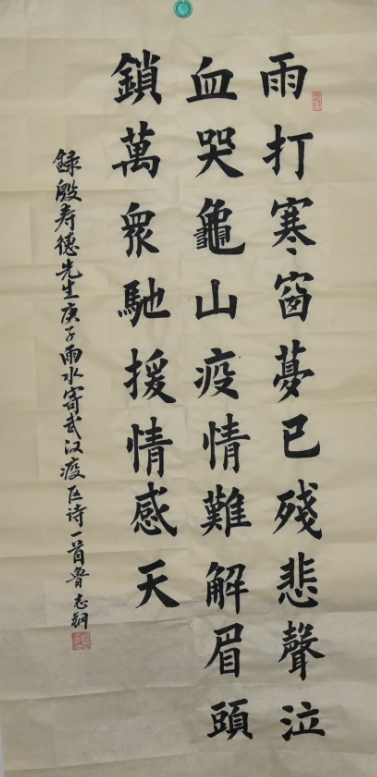 雨打寒窗夢已殘悲聲泣
血哭龜山疫情難解眉頭
鎖萬衆馳援情感天
録殷寿德先生庚子雨水寄武汉疫区诗一首魯志